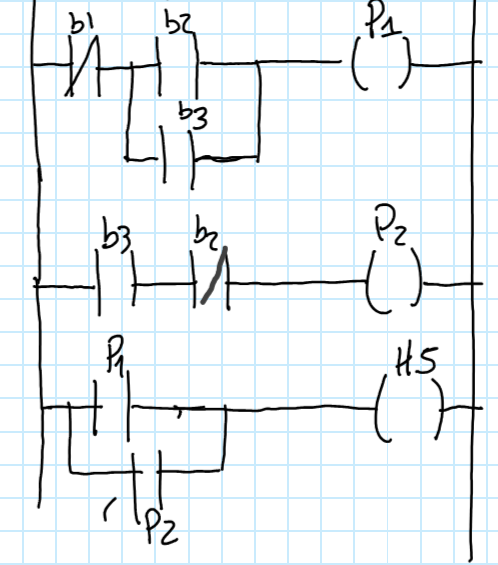 b1 b2 P1
b3
b3 b2 P2
P1 H5
P2